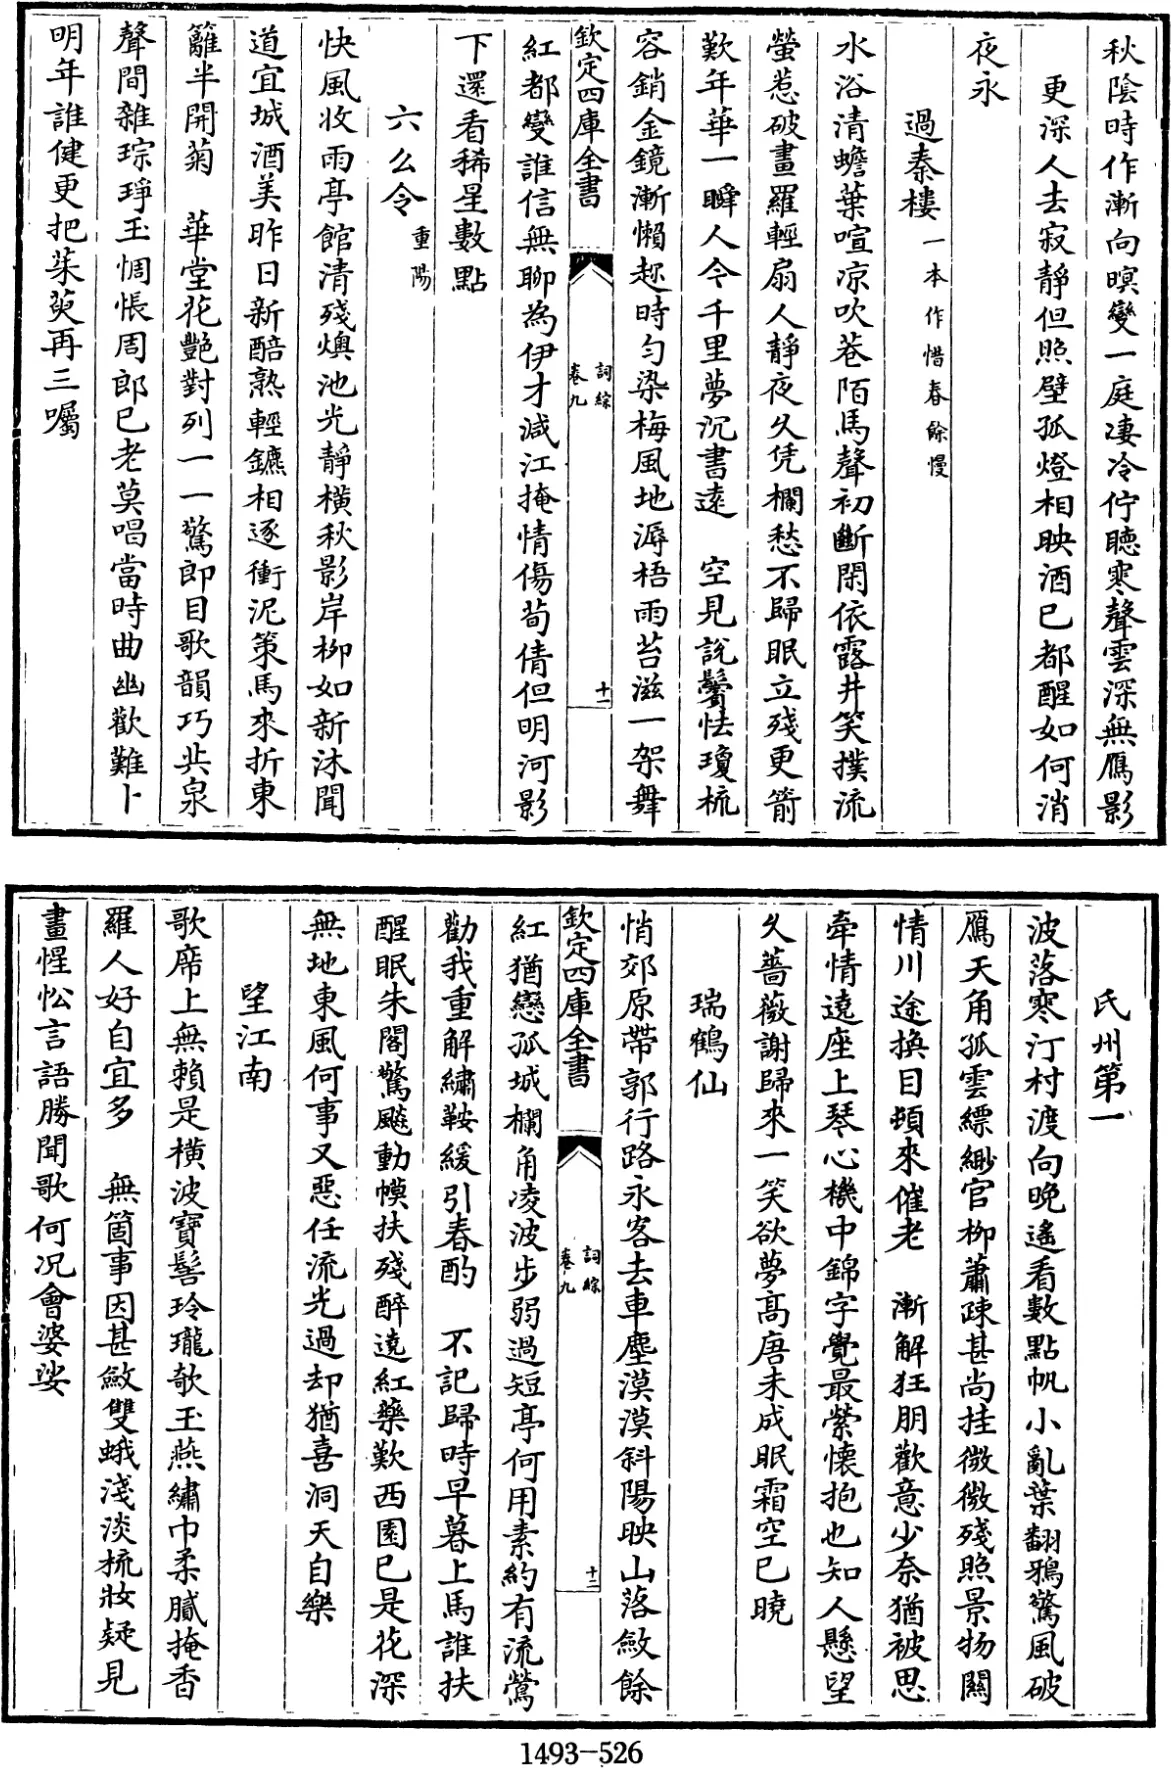 秋陰時作漸向暝變一庭凄冷佇聽寒聲雲深無鴈影
更深人去寂靜但照壁孤燈相映酒已都醒如何消
夜永
過秦樓 一本作惜春餘慢
水浴清蟾葉喧凉吹巷陌馬聲初斷閑依露井笑撲流
螢惹破畫羅輕扇人靜夜久凭欄愁不歸眠立殘更箭
歎年華一瞬人今千里夢沉書遠 空見說鬢怯瓊梳
容銷金鏡漸懶趂時勻染梅風地溽梧雨苔滋一架舞
欽定四庫全書 詞綜 卷九 十一
紅都變誰信無聊為伊才減江掩情傷荀倩但明河影
下還看稀星數點
六么令 重陽
快風收雨亭館清殘燠池光靜橫秋影岸柳如新沐聞
道宜城酒美昨日新醅熟輕鑣相逐衝泥策馬來折東
籬半開菊 華堂花艷對列一一驚郎目歌韻巧共泉
聲間雜琮琤玉惆悵周郎已老莫唱當時曲幽歡難卜
明年誰健更把茱萸再三囑
氐州第一
波落寒汀村渡向晚遙看數點帆小亂葉翻鴉驚風破
鴈天角孤雲縹緲官柳蕭疎甚尚挂微微殘照景物關
情川途換目頓來催老 漸解狂朋歡意少奈猶被思
牽情遶座上琴心機中錦字覺最縈懷抱也知人懸望
久薔薇謝歸來一笑欲夢高唐未成眠霜空已曉
瑞鶴仙
悄郊原帶郭行路永客去車塵漠漠斜陽映山落斂餘
欽定四庫全書 詞綜 卷九 十二
紅猶戀孤城欄角凌波步弱過短亭何用素約有流鶯
勸我重解繡鞍緩引春酌 不記歸時早暮上馬誰扶
醒眠朱閣驚飈動幙扶殘醉遶紅藥歎西園已是花深
無地東風何事又惡任流光過却猶喜洞天自樂
望江南
歌席上無賴是橫波寶髻玲瓏欹玉燕繡巾柔膩掩香
羅人好自宜多 無箇事因甚斂雙蛾淺淡梳妝疑見
畫惺忪言語勝聞歌何况會婆娑
1493-526